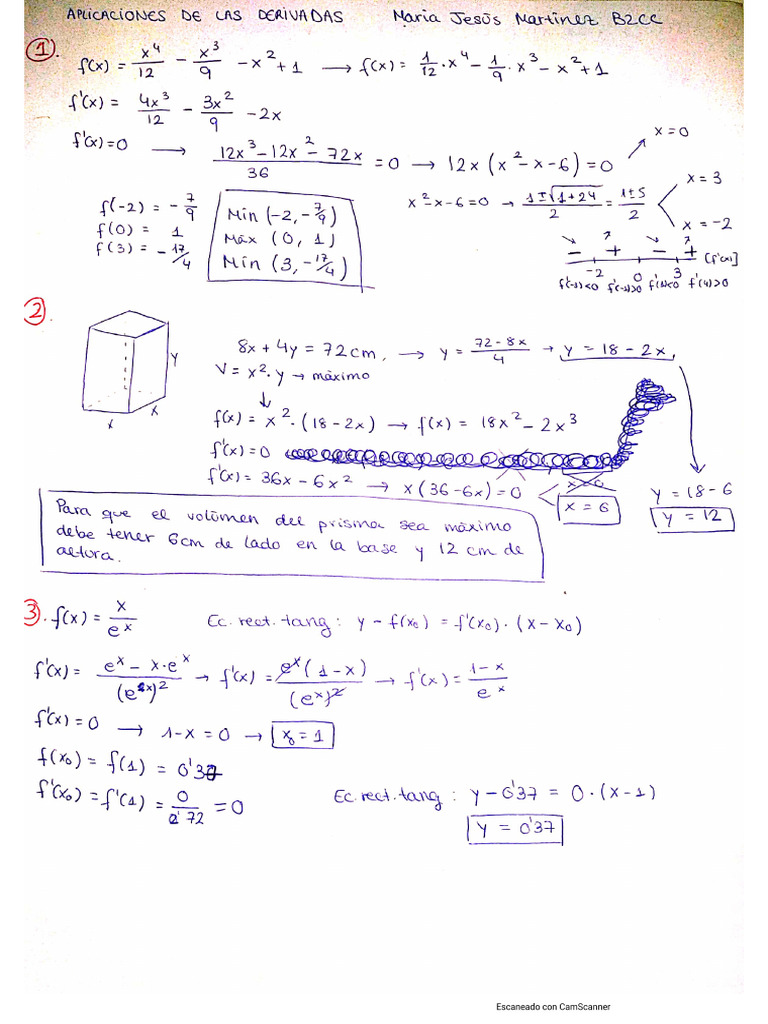 APLICACIONES DE LAS DERIVADAS María Jesús Martínez B2CC
1. f(x) = x⁴/12 − x³/9 − x² + 1 → f(x) = 1/12 · x⁴ − 1/9 · x³ − x² + 1
f'(x) = 4x³/12 − 3x²/9 − 2x
f'(x) = 0 → (12x³ − 12x² − 72x)/36 = 0 → 12x (x² − x − 6) = 0 x = 0
x² − x − 6 = 0 → (1 ± √(1 + 24))/2 = (1 ± 5)/2 x = 3
x = −2
f(−2) = −7/9
f(0) = 1
f(3) = −17/4
Min (−2, −7/9)
Máx (0, 1)
Min (3, −17/4)
− + − + [f'(x)]
−2 0 3
f'(-3)<0 f'(-1)>0 f'(1)<0 f'(4)>0
2.
y
x x
8x + 4y = 72 cm, → y = (72 − 8x)/4 → y = 18 − 2x,
V = x² · y → máximo
f(x) = x² · (18 − 2x) → f(x) = 18x² − 2x³
f'(x) = 0
f'(x) = 36x − 6x² → x (36 − 6x) = 0 x = 0
x = 6
y = 18 − 6
y = 12
Para que el volúmen del prisma sea máximo
debe tener 6cm de lado en la base y 12 cm de
altura.
3. f(x) = x/eˣ Ec. rect. tang : y − f(x₀) = f'(x₀) · (x − x₀)
f'(x) = (eˣ − x·eˣ)/(eˣ)² → f'(x) = eˣ(1 − x)/(eˣ)² → f'(x) = (1 − x)/eˣ
f'(x) = 0 → 1 − x = 0 → x₀ = 1
f(x₀) = f(1) = 0'37
f'(x₀) = f'(1) = 0/2'72 = 0 Ec. rect. tang : y − 0'37 = 0 · (x − 1)
y = 0'37
Escaneado con CamScanner